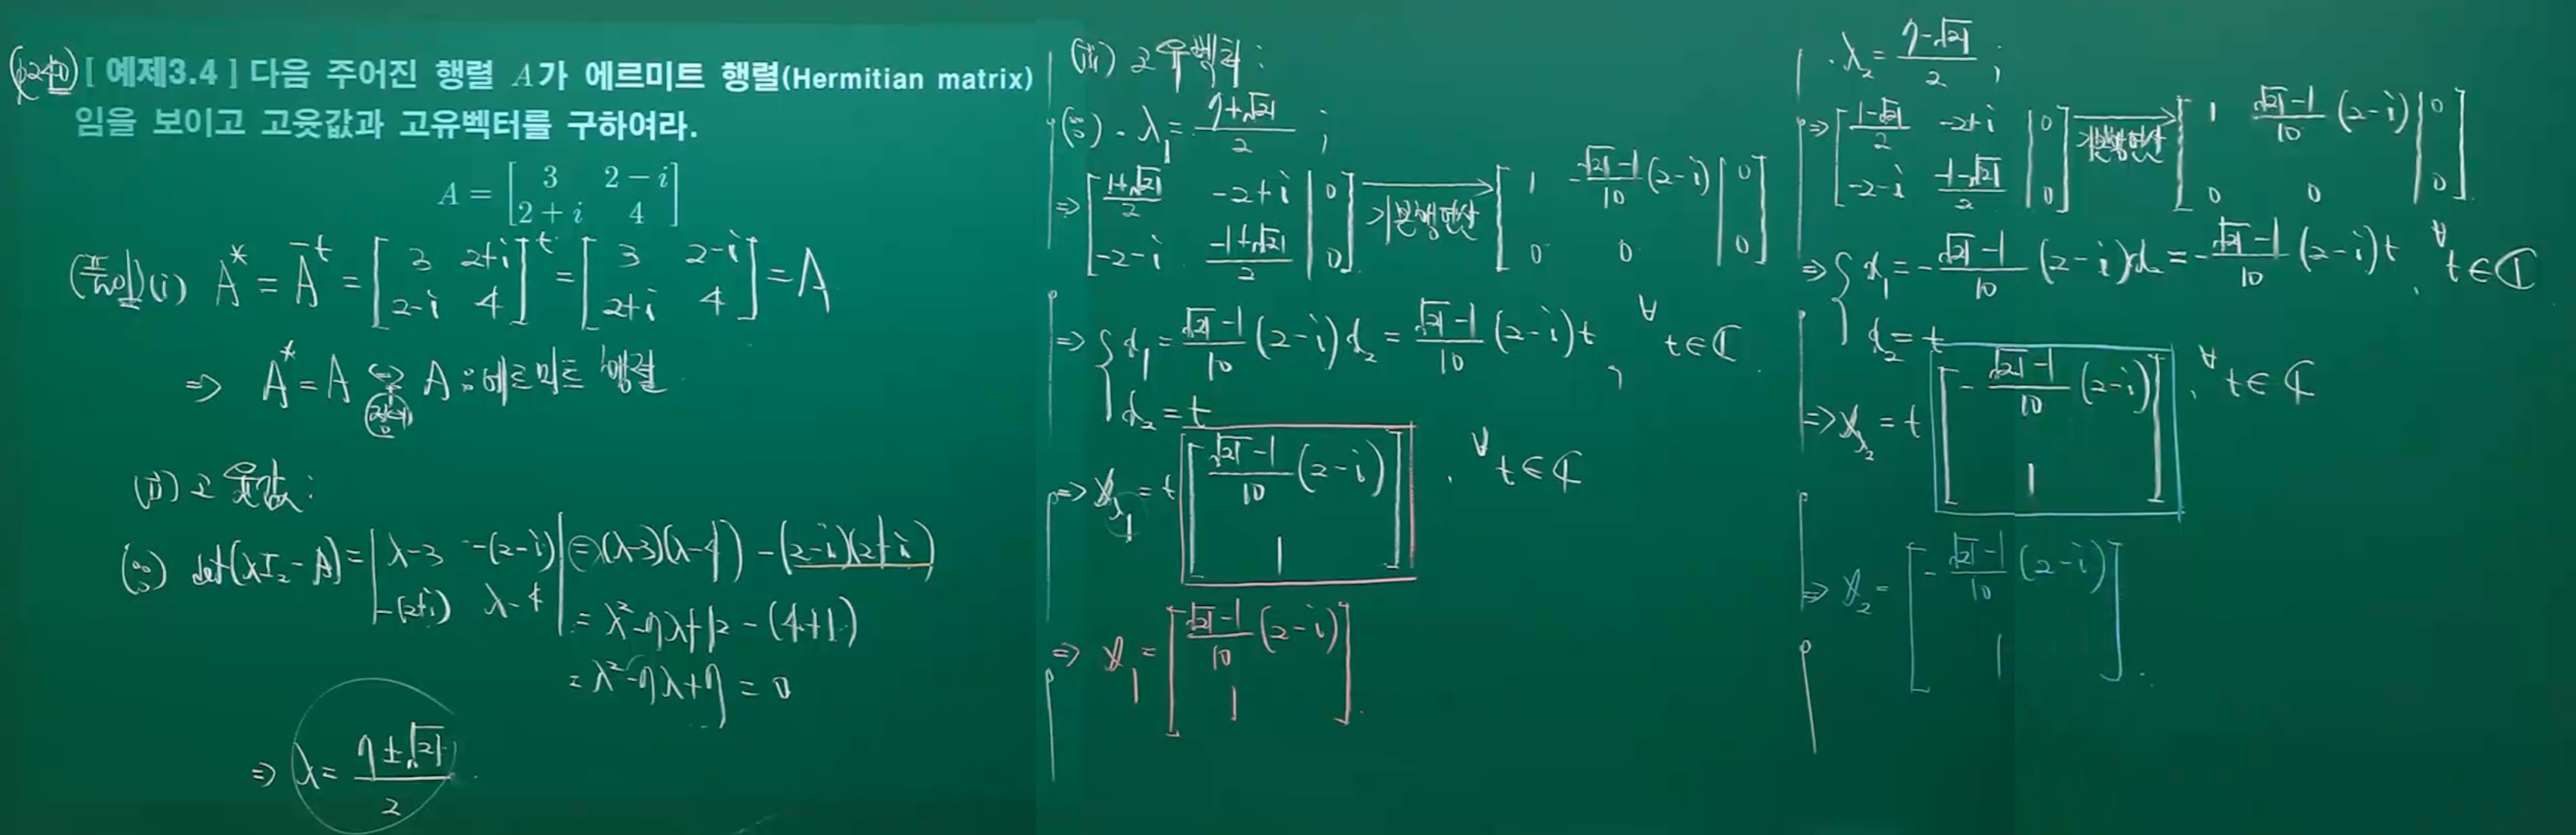 (p240) [ 예제3.4 ] 다음 주어진 행렬 A가 에르미트 행렬(Hermitian matrix)
임을 보이고 고윳값과 고유벡터를 구하여라.
A = [3 2-i; 2+i 4]
(풀이)(i) A* = Ā^t = [3 2+i; 2-i 4]^t = [3 2-i; 2+i 4] = A
⇒ A* = A ⇔ A : 에르미트 행렬
정의
(ii) 고윳값 :
(∵) det(λI₂ - A) = |λ-3 -(2-i); -(2+i) λ-4| = (λ-3)(λ-4) - (2-i)(2+i)
= λ² - 7λ + 12 - (4+1)
= λ² - 7λ + 7 = 0
⇒ λ = (7±√21)/2
(iii) 고유벡터 :
(∵) · λ₁ = (7+√21)/2 ;
⇒ [(1+√21)/2 -2+i | 0; -2-i (-1+√21)/2 | 0] → 기본행연산 [1 -(√21-1)/10 (2-i) | 0; 0 0 | 0]
⇒ { x₁ = (√21-1)/10 (2-i)x₂ = (√21-1)/10 (2-i)t , ∀t∈ℂ
x₂ = t
⇒ x_λ₁ = t [(√21-1)/10 (2-i); 1] , ∀t∈ℂ
⇒ x₁ = [(√21-1)/10 (2-i); 1].
· λ₂ = (7-√21)/2 ;
⇒ [(1-√21)/2 -2+i | 0; -2-i (-1-√21)/2 | 0] → 기본행연산 [1 (√21-1)/10 (2-i) | 0; 0 0 | 0]
⇒ { x₁ = -(√21-1)/10 (2-i)x₂ = -(√21-1)/10 (2-i)t , ∀t∈ℂ
x₂ = t
⇒ x_λ₂ = t [-(√21-1)/10 (2-i); 1] , ∀t∈ℂ
⇒ x₂ = [-(√21-1)/10 (2-i); 1].